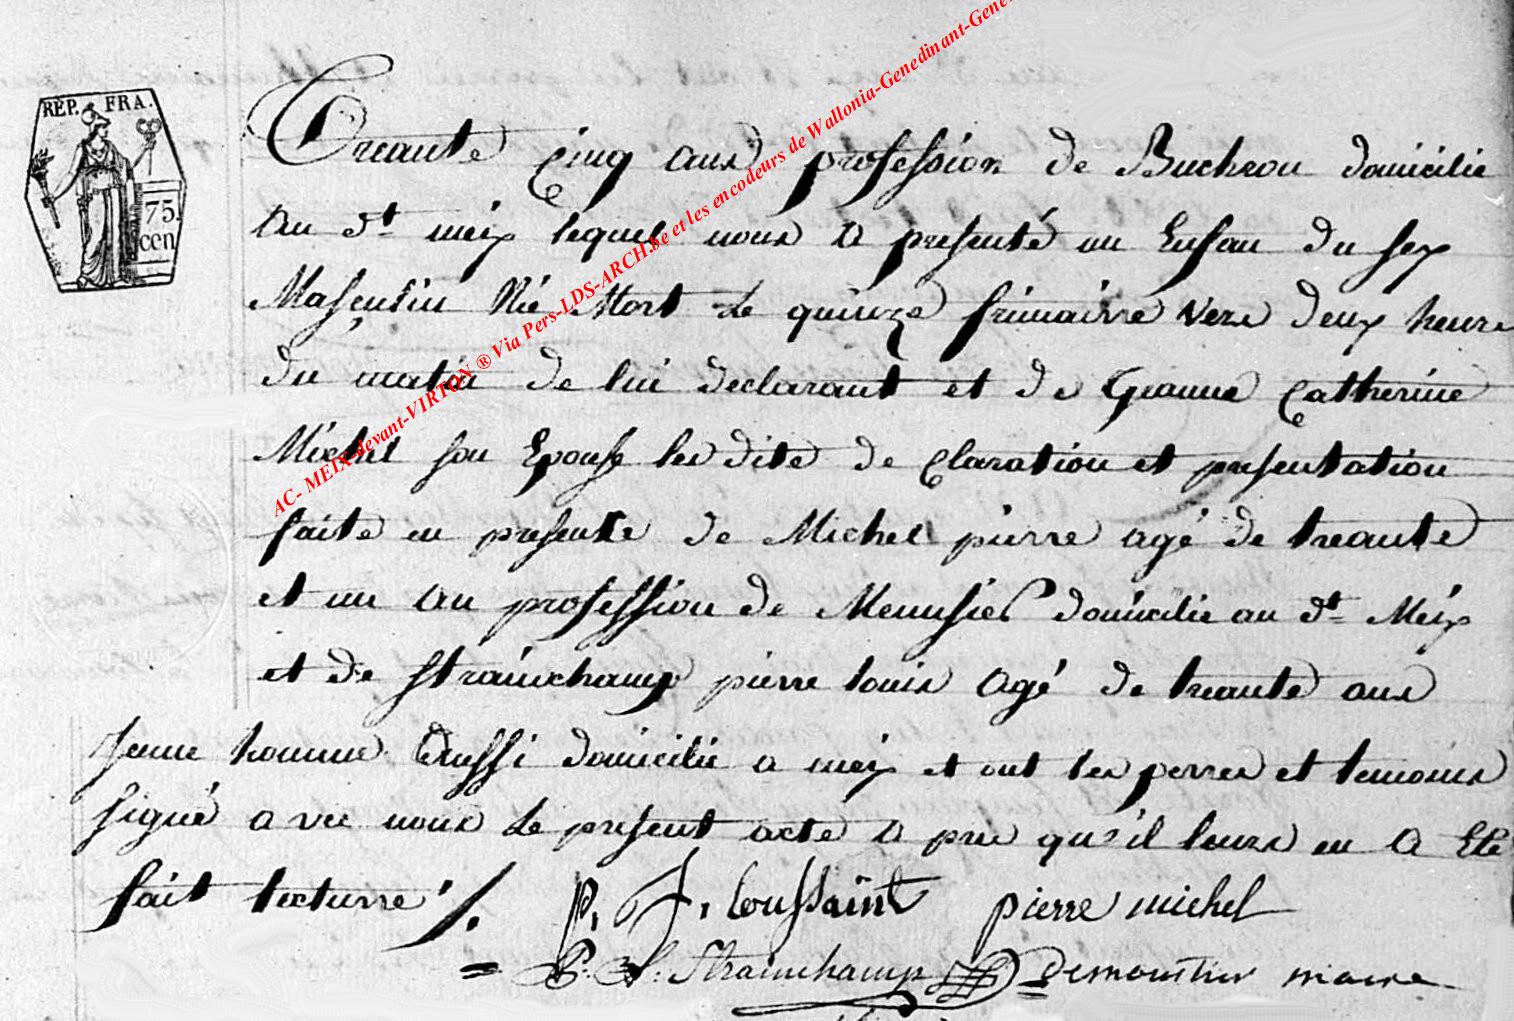 REP. FRA.
75.
cen
AC- MEIX-devant-VIRTON ® Via Pers-LDS-ARCH.be et les encodeurs de Wallonia-Genedinant-Gene
treante cinq ans profession de Bucheon domicilie
au dt meix lequel nous a presenté un Enfan du sex
Masculin Né Mort le quinze frimairre vers deux heure
du matin de lui declarant et de Geanne Catherine
Michel son Epouse les dite de claration et presentation
faite en presente de Michel pierre agé de treante
et un an profession de Menusier domicilie au dt Meix
et de Strainchamp pierre louis agé de treante ans
Jeune homme Aussi domicilie a meix et ont les perres et temoins
signé a vec nous le present acte a pre qu'il leurs en a Eté
fait lecturre /.
P. J. toussaint pierre michel
= P. L. Strainchamp = demoustier maire